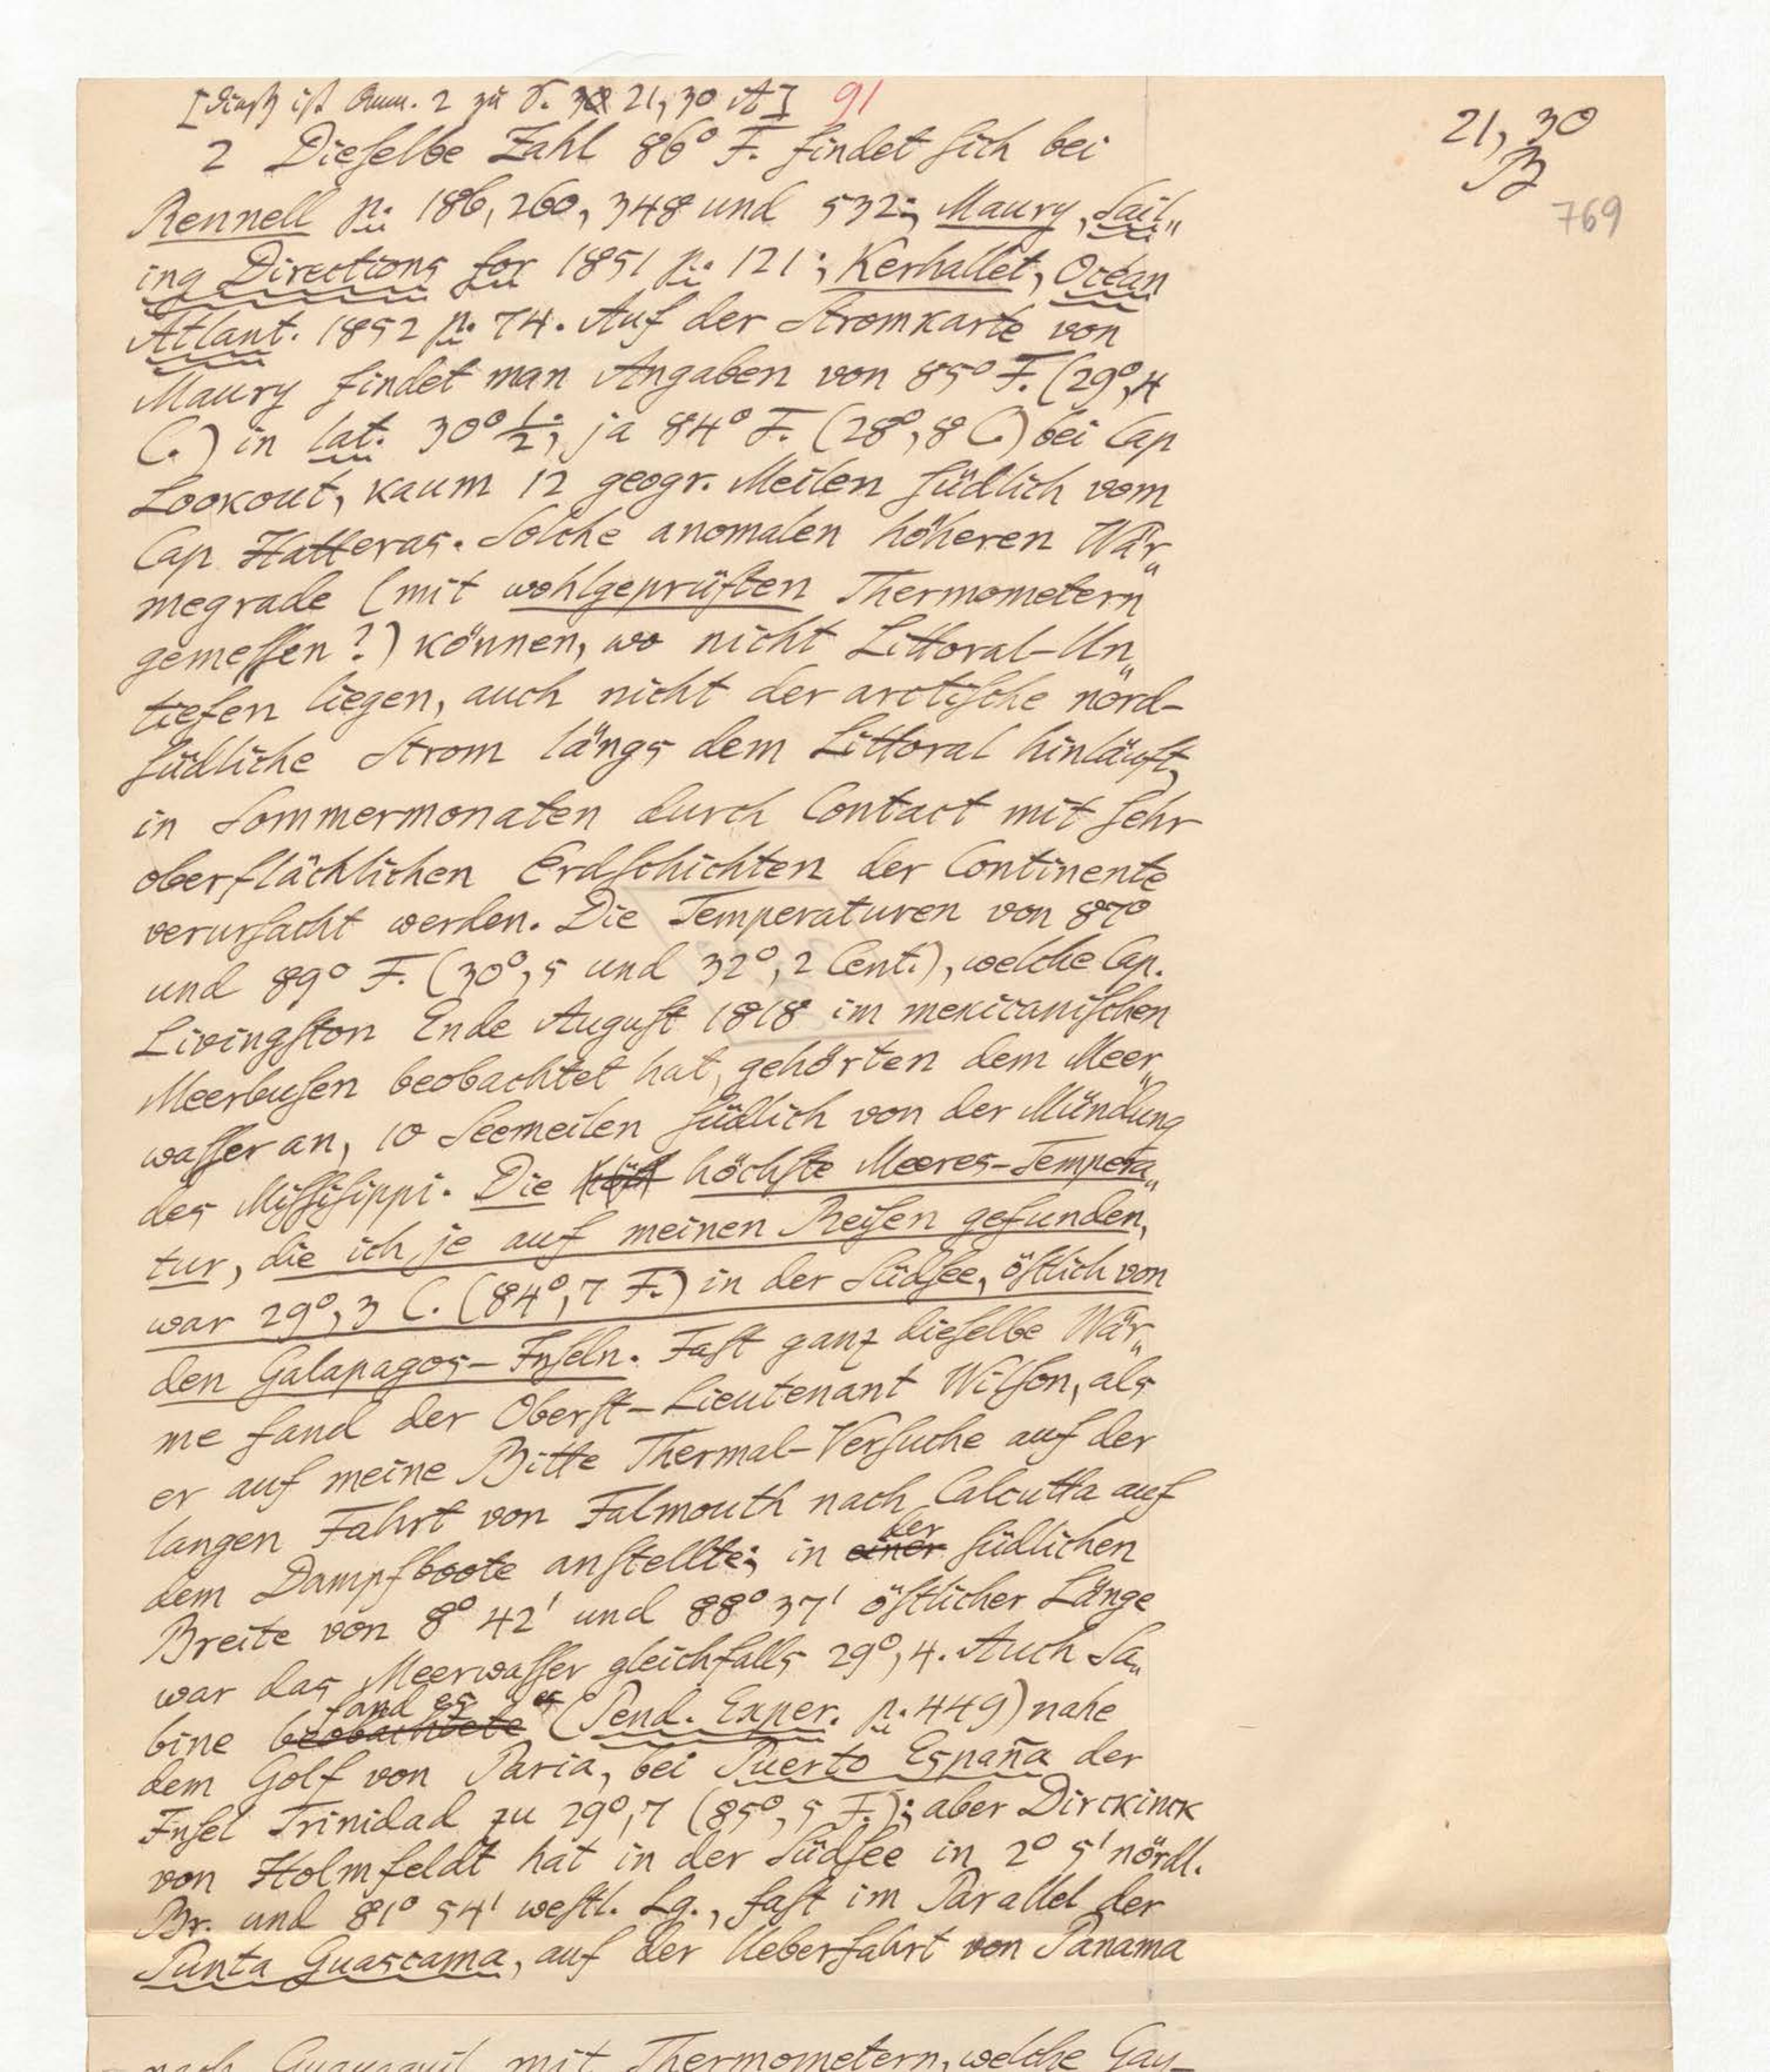 [Dieß ist Anm. 2 zu S. 21, 30 A] 91
21, 30
B
769
2 Dieselbe Zahl 86° F. findet sich bei
Rennell p. 186, 260, 348 und 532; Maury, Sail„
ing Directions for 1851 p. 121; Kerhallet, Océan
Atlant. 1852 p. 74. Auf der Stromkarte von
Maury findet man Angaben von 85° F. (29°,4
C.) in lat. 30° ½; ja 84° F. (28°,8 C.) bei Cap
Lookout, kaum 12 geogr. Meilen südlich vom
Cap Hatteras. Solche anomalen höheren Wär„
megrade (mit wohlgeprüften Thermometern
gemessen?) können, wo nicht Littoral-Un„
tiefen liegen, auch nicht der arctische nörd-
südliche Strom längs dem Littoral hinläuft,
in Sommermonaten durch Contact mit sehr
oberflächlichen Erdschichten der Continente
verursacht werden. Die Temperaturen von 87°
und 89° F. (30°,5 und 32°,2 Cent.), welche Cap.
Livingston Ende August 1818 im mexicanischen
Meerbusen beobachtet hat, gehörten dem Meer„
wasser an, 10 Seemeilen südlich von der Mündung
des Missisippi. Die höchste Meeres-Tempera„
tur, die ich je auf meinen Reisen gefunden,
war 29°,3 C. (84°,7 F.) in der Südsee, östlich von
den Galapagos-Inseln. Fast ganz dieselbe Wär„
me fand der Oberst-Lieutenant Wilson, als
er auf meine Bitte Thermal-Versuche auf der
langen Fahrt von Falmouth nach Calcutta auf
dem Dampfboote anstellte; in einer der südlichen
Breite von 8° 42' und 88° 37' östlicher Länge
war das Meerwasser gleichfalls 29°,4. Auch Sa„
bine beobachtete fand es (Pend. Exper. p. 449) nahe
dem Golf von Paria, bei Puerto España der
Insel Trinidad zu 29°,7 (85°,5 F.); aber Dirckinck
von Holmfeldt hat in der Südsee in 2° 5' nördl.
Br. und 81° 54' westl. Lg., fast im Parallel der
Punta Guascama, auf der Ueberfahrt von Panama
nach Guayaquil mit Thermometern, welche Gay-